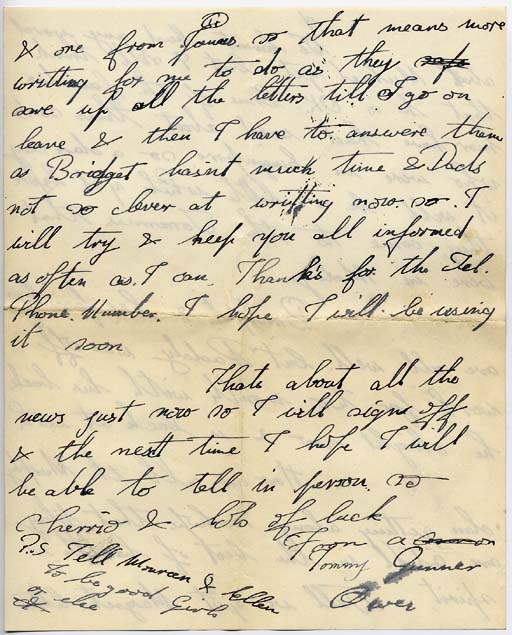 & one from James so that means more
writting for me to do as they safe
save up all the letters till I go on
leave & then I have to answere them
as Bridget hasnt much time & Dads
not so clever at writting now. so. I
will try & keep you all informed
as often as. I can. Thanks for the Tel.
Phone. Number. I hope I will be using
it soon
Thats about all the
news just now so I will signe off
& the nextt time I hope I will
be able to tell in person. so
Cherrio & lots of luck
From a
Tommy Gunner
Owen
P.S Tell Moureen & Ellen
to be good Girls
or else